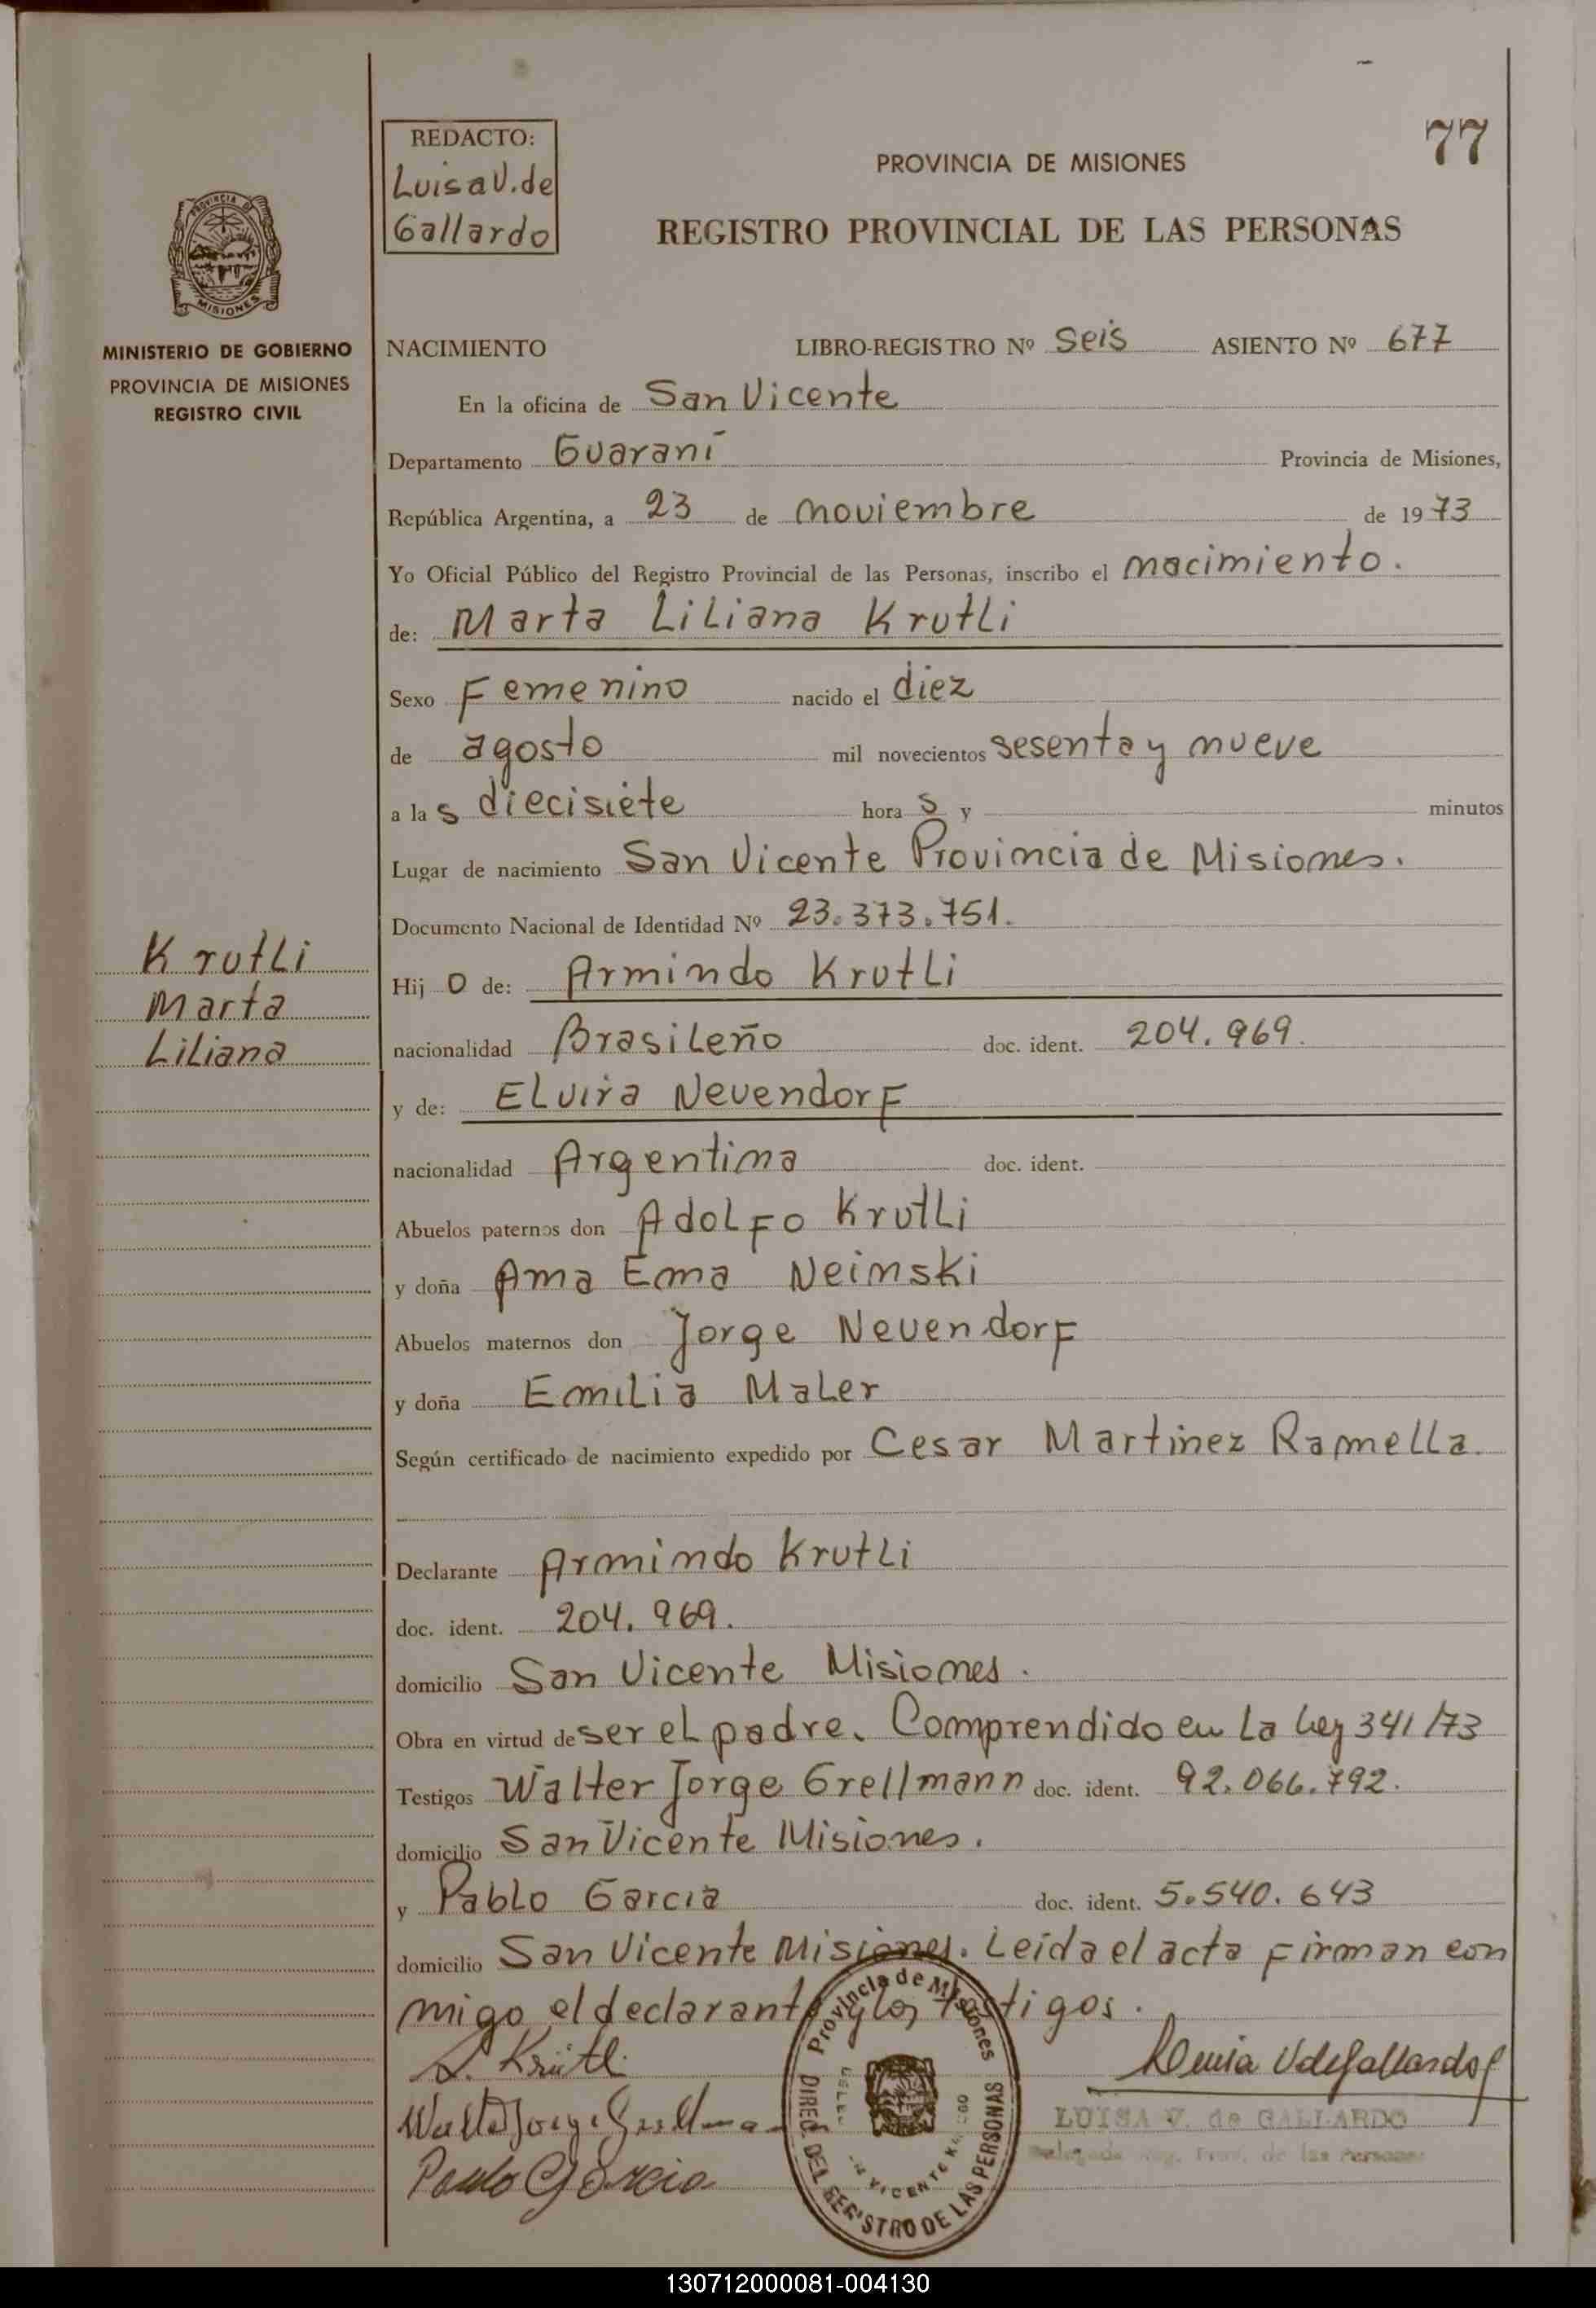 77
REDACTO:
Luisa V. de
Gallardo
PROVINCIA DE MISIONES
REGISTRO PROVINCIAL DE LAS PERSONAS
PROVINCIA DE
MISIONES
MINISTERIO DE GOBIERNO
PROVINCIA DE MISIONES
REGISTRO CIVIL
NACIMIENTO LIBRO-REGISTRO Nº Seis ASIENTO Nº 677
En la oficina de San Vicente
Departamento Guaraní Provincia de Misiones,
República Argentina, a 23 de noviembre de 1973
Yo Oficial Público del Registro Provincial de las Personas, inscribo el nacimiento.
de: Marta Liliana Krutli
Sexo Femenino nacido el diez
de agosto mil novecientos sesenta y nueve
a las diecisiete horas y minutos
Lugar de nacimiento San Vicente Provincia de Misiones.
Documento Nacional de Identidad Nº 23.373.751.
Krutli
Marta
Liliana
Hijo de: Armindo Krutli
nacionalidad Brasileño doc. ident. 204.969.
y de: Elvira Nevendorf
nacionalidad Argentina doc. ident.
Abuelos paternos don Adolfo Krutli
y doña Ana Ema Neinski
Abuelos maternos don Jorge Nevendorf
y doña Emilia Maler
Según certificado de nacimiento expedido por Cesar Martinez Ramella.
Declarante Armindo Krutli
doc. ident. 204.969.
domicilio San Vicente Misiones.
Obra en virtud de ser el padre. Comprendido en la Ley 341/73
Testigos Walter Jorge Grellmann doc. ident. 92.066.792.
domicilio San Vicente Misiones.
y Pablo Garcia doc. ident. 5.540.643
domicilio San Vicente Misiones. Leída el acta firman con
migo el declarante y los testigos.
A. Krütli
Walter Jorge Grellmann
Pablo Garcia
Luisa V de Gallardo
LUISA V. de GALLARDO
Delegada Reg. Prov. de las Personas
Provincia de Misiones
DIREC. DEL REGISTRO DE LAS PERSONAS
130712000081-004130